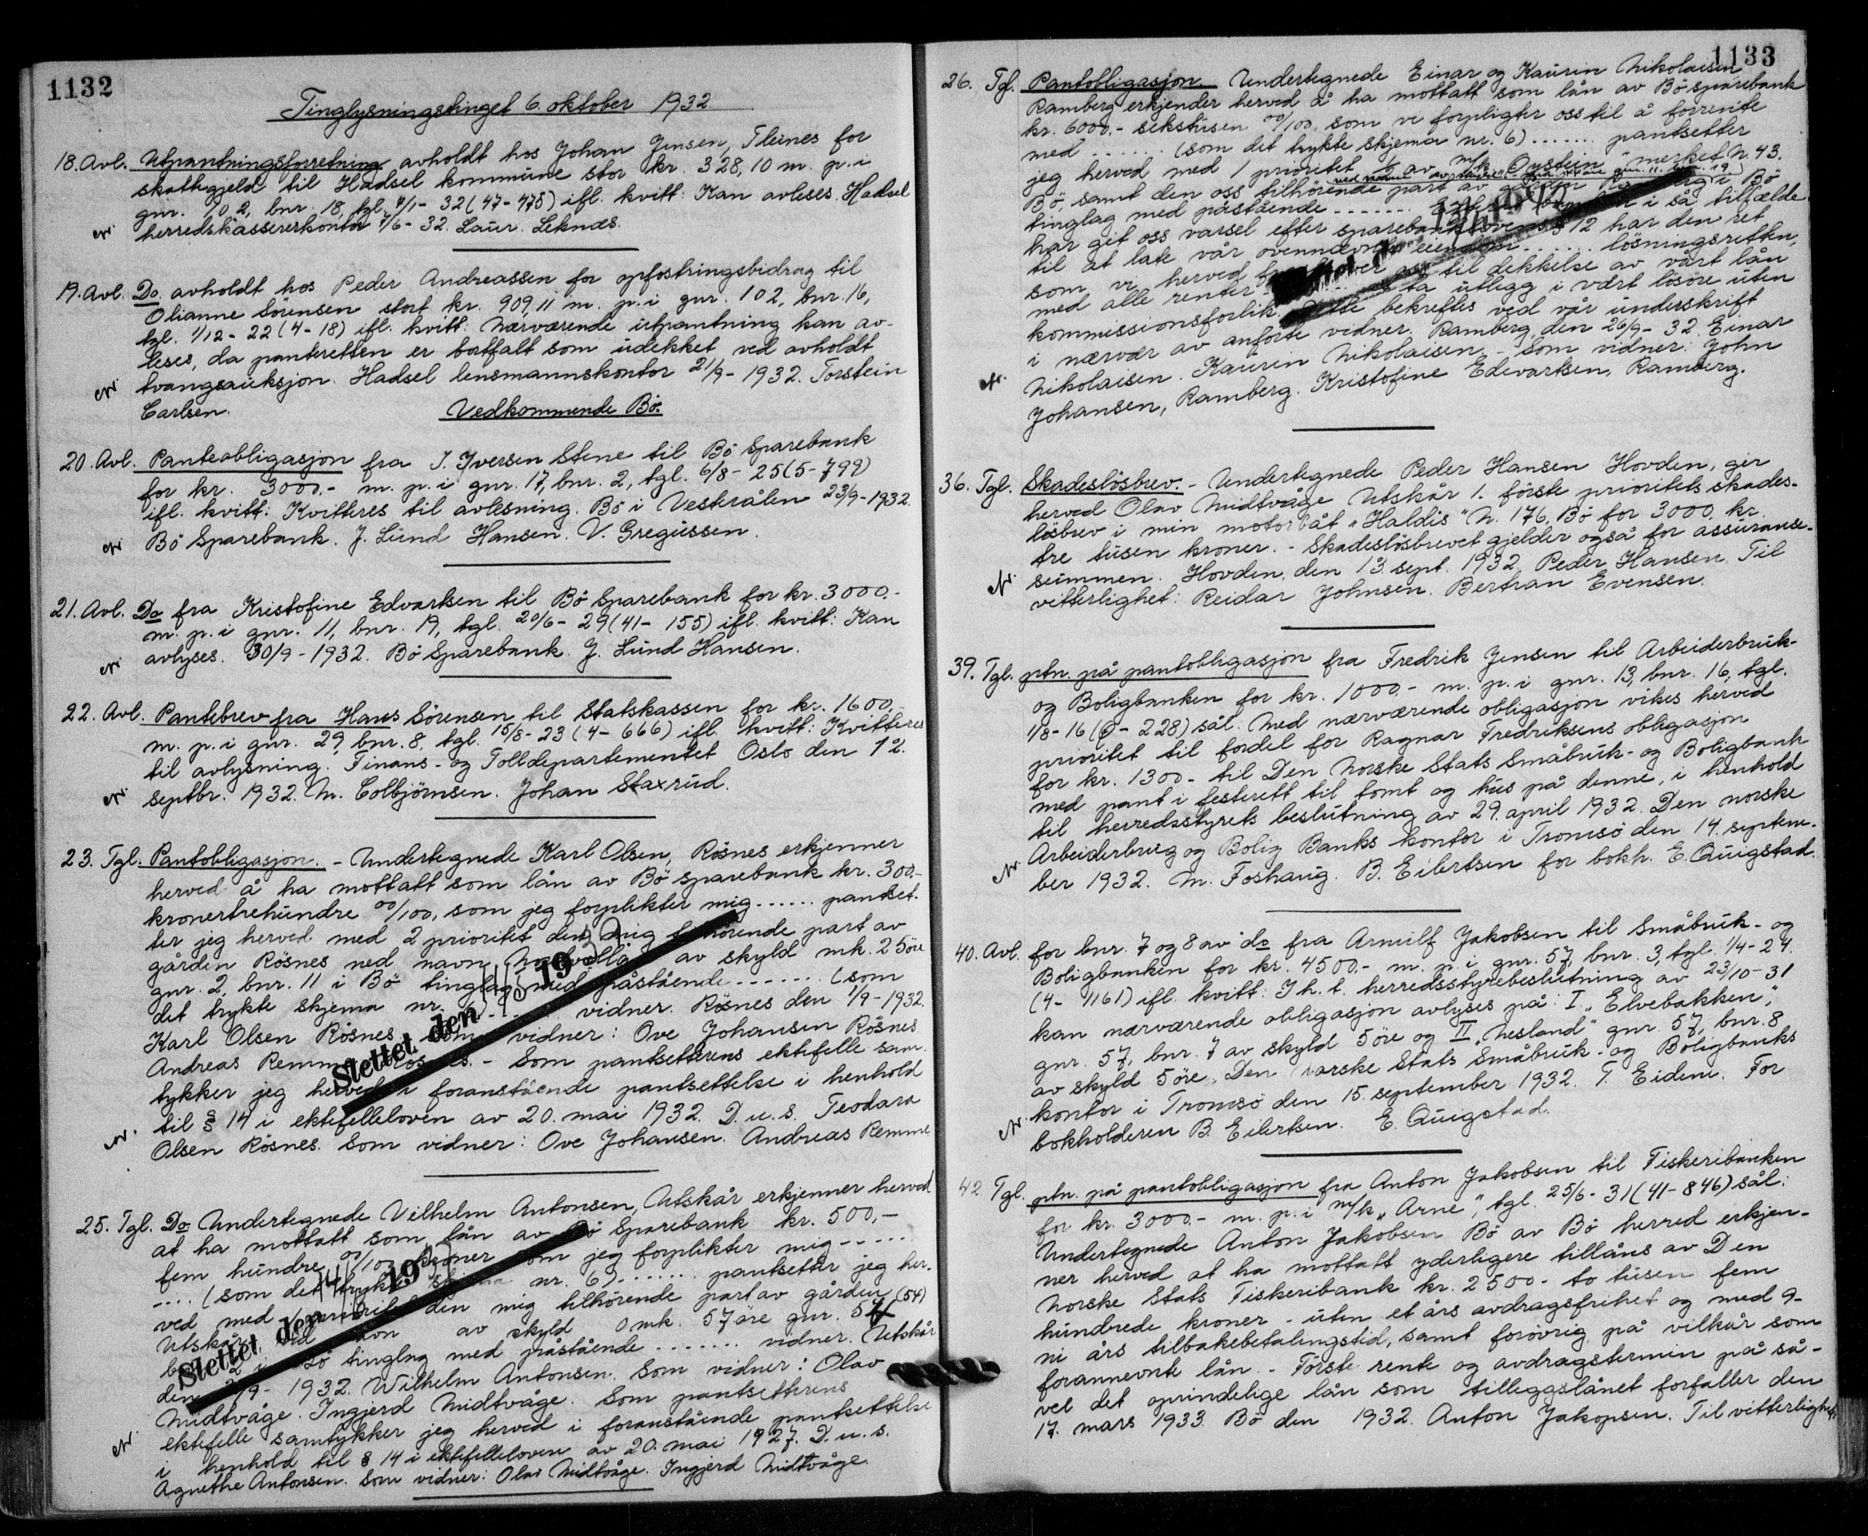 1132
Tinglysningstinget 6. oktober 1932
18. Avl. Utpantningsforretning avholdt hos Johan Jensen, Fleines for
skattegjeld til Hadsel kommune stor kr. 328,10 m. p. i
gnr. 102, bnr. 18, tgl. 4/1-32 (47-475) ifl. kvitt: Kan avleses. Hadsel
herredskassererkontor 7/6-32. Laur. Leknæs.
19. Avl. Do avholdt hos Peder Andreassen for opfostringsbidrag til
Olianne Sørensen stort kr. 909,11 m. p. i gnr. 102, bnr. 16,
tgl. 1/12-22 (4-18) ifl. kvitt: Nærværende utpantning kan av-
leses, da panteretten er bortfalt som udekket ved avholdt
tvangsauksjon. Hadsel lensmannskontor 21/9-1932. Torstein
Carlsen.
Vedkommende Bö.
20. Avl. Panteobligasjon fra J. Iversen Steine til Bö Sparebank
for kr. 3000,- m. p. i gnr. 17, bnr. 2, tgl. 6/8-25 (5-799)
ifl. kvitt: Kvitteres til avlesning. Bö i Vesterålen 23/9-1932.
Bö Sparebank. J. Lund Hansen. V. Gregussen.
21. Avl. Do fra Kristofine Edvartsen til Bö Sparebank for kr. 3000.-
m. p. i gnr. 11, bnr. 19, tgl. 20/6-29 (41-155) ifl. kvitt: Kan
avlyses. 30/9-1932. Bö Sparebank. J. Lund Hansen.
22. Avl. Pantebrev fra Hans Sörensen til Statskassen for kr. 1600,-
m. p. i gnr. 29, bnr. 8, tgl. 15/8-23 (4-666) ifl. kvitt: Kvitteres
til avlysning. Finans- og Tolldepartementet Oslo den 12.
septbr. 1932. M. Colbjörnsen. Johan Staxrud.
23. Tgl. Pantobligasjon. - Undertegnede Karl Olsen, Rösnes erkjenner
herved å ha mottatt som lån av Bö sparebank kr. 300,-
kronertrehundre 00/100, som jeg forplikter mig ...... pantset-
ter jeg herved med 2 prioritet den mig tilhörende part av
gården Rösnes ned navn av skyld mk. 25 öre
gnr. 2, bnr. 11 i Bö tinglag med påstående ...... (som
det trykte skjema nr. ...... vidner. Rösnes den 1/9-1932.
Karl Olsen Rösnes. Som vidner: Ove Johansen Rösnes
Andreas Remme Rösnes. - Som pantsetterens ektefelle sam-
tykker jeg herved i foranstående pantsettelse i henhold
til § 14 i ektefelleloven av 20. mai 1932. D. u. s. Teodara
Olsen Rösnes. Som vidner: Ove Johansen. Andreas Remme
Slettet den 19
25. Tgl. Do Undertegnede Vilhelm Antonsen, Utskår erkjenner herved
at ha mottatt som lån av Bö Sparebank kr. 500,-
fem hundre 00/100 kroner som jeg forplikter mig ......
.... (som det trykte skjema nr. 6) ...... pantsetter jeg her-
ved med 1 prioritet den mig tilhörende part av gården (54)
Utskår ved navn av skyld 0 mk. 57 öre gnr.
i Bö tinglag med påstående ...... vidner. Utskår
den /9-1932. Wilhelm Antonsen. Som vidner: Olav
Midtvåge. Ingjerd Midtvåge. Som pantsetterens
ektefelle samtykker jeg herved i foranstående pantsettelse
i henhold til § 14 i ektefelleloven av 20. mai 1927. D. u. s.
Agnethe Antonsen. Som vidner: Olav Midtvåge. Ingjerd Midtvåge.
Slettet den 19
1133
26. Tgl. Pantobligasjon. Undertegnede Einar og Kaurin Nikolaisen,
Ramberg erkjender herved å ha mottatt som lån av Bö sparebank
kr. 6000.- sekstusen 00/100. som vi forpligter oss til å forrente
med ...... (som det trykte skjema nr. 6) ...... pantsetter
jeg herved med 1 prioritet av m/k "Öystein" merket N. 43.
Bö, samt den oss tilhörende part av i Bö
tinglag med påstående ...... i så tilfælde
har git oss varsel efter sparebankloven § 12 har den ret
til at late vår ovennævnte eiendom ...... lösningsretten,
som vi herved til dekkelse av vårt lån
med alle renter ta utlegg i vært lösöre uten
kommissionsforlik. Dette bekreftes ved vår underskrift
i nærvær av anförte vidner. Ramberg den 26/9-32. Einar
Nikolaisen. Kaurin Nikolaisen. Som vidner: John
Johansen, Ramberg. Kristofine Edvartsen, Ramberg.
36. Tgl. Skadeslösbrev. - Undertegnede Peder Hansen Hovden, gir
herved Olav Midtvåge Utskår 1. förste prioritets skades-
lösbrev i min motorbåt "Haldis" N. 176, Bö for 3000 kr.
tre tusen kroner. - Skadeslösbrevet gjelder også for assuranse-
summen. Hovden, den 13. sept. 1932. Peder Hansen. Til
vitterlighet: Reidar Johnsen. Bertran Evensen.
39. Tgl. ptn. på pantobligasjon fra Fredrik Jensen til Arbeiderbruk-
og Boligbanken for kr. 1000,- m. p. i gnr. 13, bnr. 16, tgl.
1/8-16 (9-228) sål: Med nærværende obligasjon vikes herved
prioritet til fordel for Ragnar Fredriksens obligasjon
for kr. 1300.- til Den Norske Stats Småbruk- og Boligbank
med pant i festerett til tomt og hus på denne, i henhold
til herredsstyrets beslutning av 29. april 1932. Den norske
Arbeiderbrug og Bolig Banks kontor i Tromsö den 14. septem-
ber 1932. M. Foshaug. B. Eilertsen for bokh. E. Quigstad.
40. Avl. for bnr. 7 og 8 av do fra Arnulf Jakobsen til Småbruk- og
Boligbanken for kr. 4500.- m. p. i gnr. 57, bnr. 3, tgl. 1/4-24.
(4-1161) ifl. kvitt: I h. t. herredsstyrebeslutning av 23/10-31
kan nærværende obligasjon avlyses på: I "Elvebakken",
gnr. 57, bnr. 7 av skyld 5 öre og II "Nesland" gnr. 57, bnr. 8
av skyld 5 öre. Den norske Stats Småbruk- og Boligbanks
kontor i Tromsö den 15. september 1932. T. Eidem. For
bokholderen B. Eilertsen. E. Quigstad.
42. Tgl. ptn. på pantobligasjon fra Anton Jakobsen til Fiskeribanken
for kr. 3000.- m. p. i m/k "Arne", tgl. 25/6-31 (41-846) sål:
Undertegnede Anton Jakobsen Bö av Bö herred erkjen-
ner herved at ha mottatt yderligere tillåns av Den
Norske Stats Fiskeribank kr. 2500.- to tusen fem
hundrede kroner - uten et års avdragsfrihet og med 9-
ni års tilbakebetalingstid, samt forövrig på vilkår som
forannevnte lån. - Förste rente og avdragstermin på så-
vel det oprindelige lån som tilleggslånet forfaller den
17. mars 1933. Bö den 1932. Anton Jakopsen. Til vitterlighet: